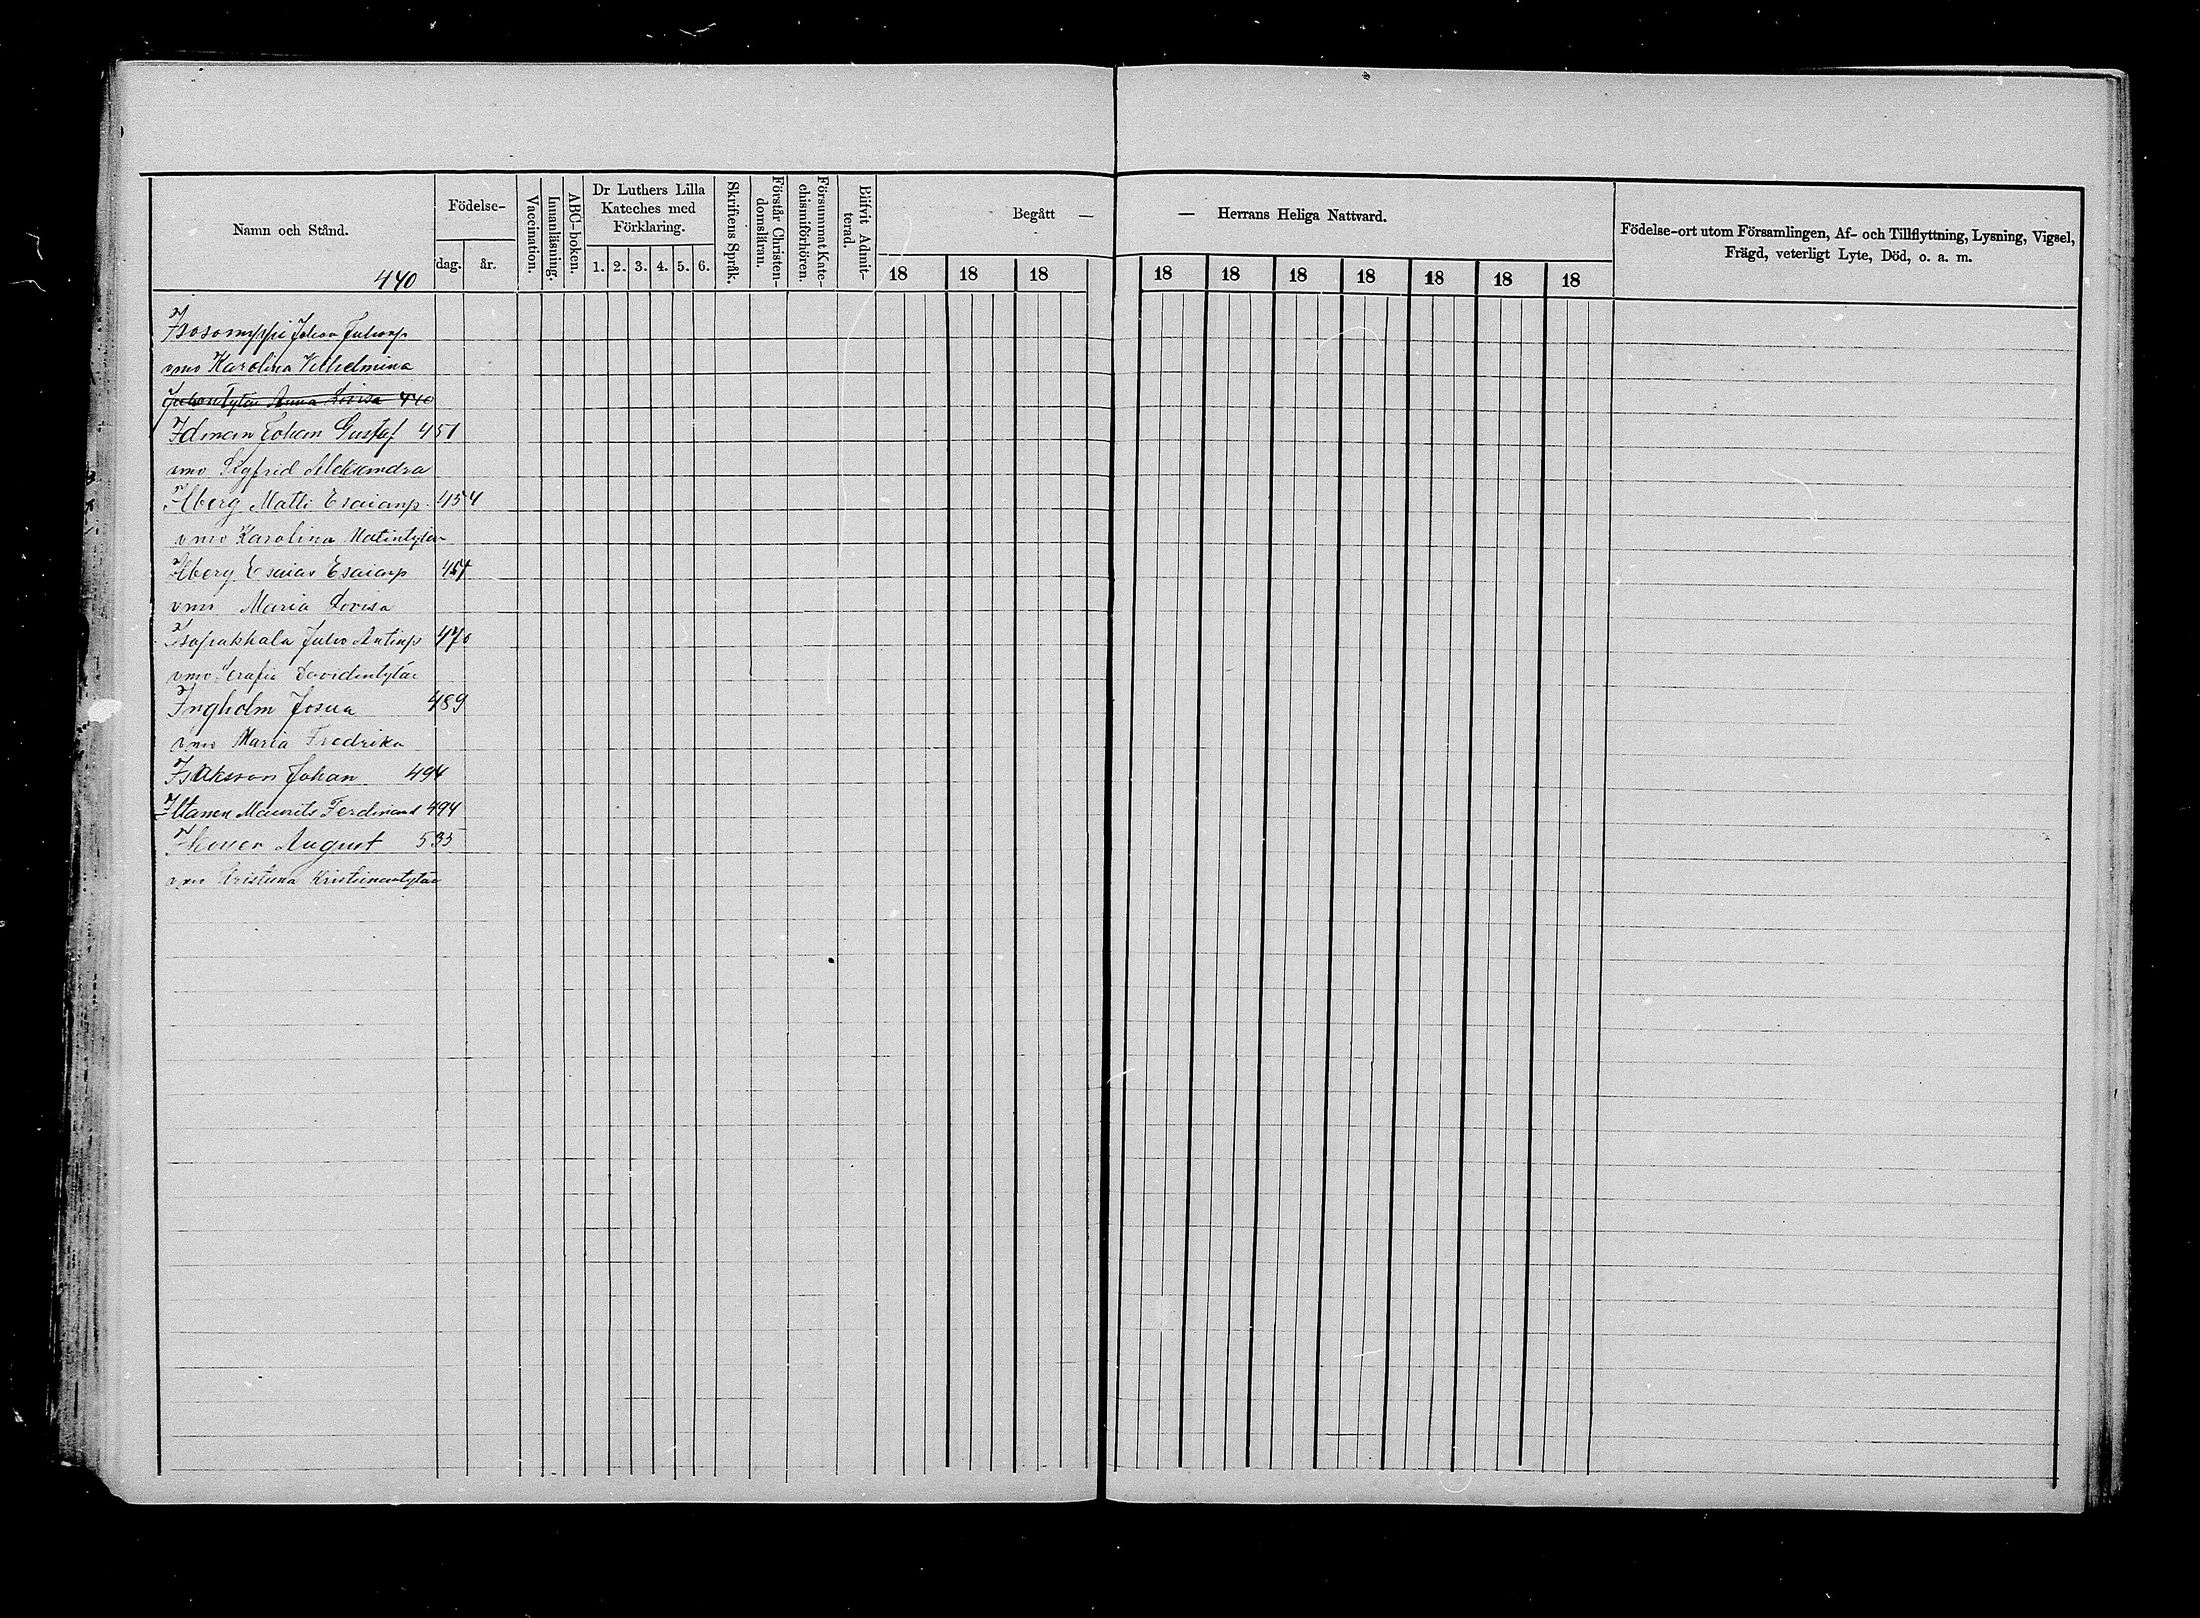 Namn och Stånd.
440
Födelse-
dag. år.
Vaccination.
Innanläsning.
ABC-boken.
Dr Luthers Lilla
Kateches med
Förklaring.
1. 2. 3. 4. 5. 6.
Skriftens Språk.
Förstår Christen-
domsläran.
Försummat Kate-
chismiförhören.
Blifvit Admit-
terad.
Begått —
18 18 18
— Herrans Heliga Nattvard.
18 18 18 18 18 18 18
Födelse-ort utom Församlingen, Af- och Tillflyttning, Lysning, Vigsel,
Frägd, veterligt Lyte, Död, o. a. m.
Isosomppi Johan Juhonp
vmo Karolina Vilhelmina
Juhontytär Anna Lovisa 440
Idman Johan Gustaf 451
vmo Sigfrid Aleksandra
Ilberg Matti Esaianp. 454
vmo Karolina Matintytär
Ilberg Esaias Esaianp 454
vmo Maria Lovisa
Isopakkala Juho Antinp 470
vmo Serafia Davidintytär
Ingholm Josua 489
vmo Maria Fredrika
Isaksson Johan 494
Iltanen Maurits Ferdinand 494
August 535
vmo Kristiina Kristianintytär